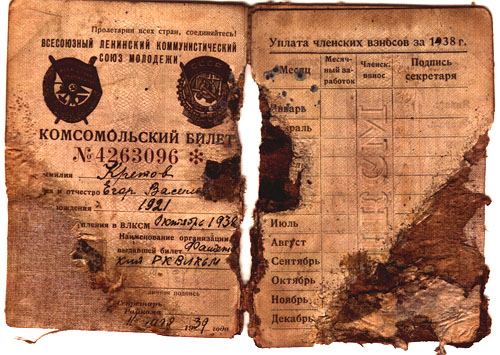 Пролетарии всех стран, соединяйтесь!
ВСЕСОЮЗНЫЙ ЛЕНИНСКИЙ КОММУНИСТИЧЕСКИЙ
СОЮЗ МОЛОДЕЖИ
КОМСОМОЛЬСКИЙ БИЛЕТ
№4263096 *
милия Кретов
и отчество Егор
ождения 1921
пления в ВЛКСМ Октябрь 193
Наименование организации,
выдавшей билет
РКВЛКСМ
личная подпись
Секретарь
Райкома
1939 года
Уплата членских взносов за 1938 г.
Месяц
Месяч-
ный за-
работок
Членск.
взнос
Подпись
секретаря
Январь
раль
Июль
Август
Сентябрь
Октябрь
Ноябрь
Декабрь